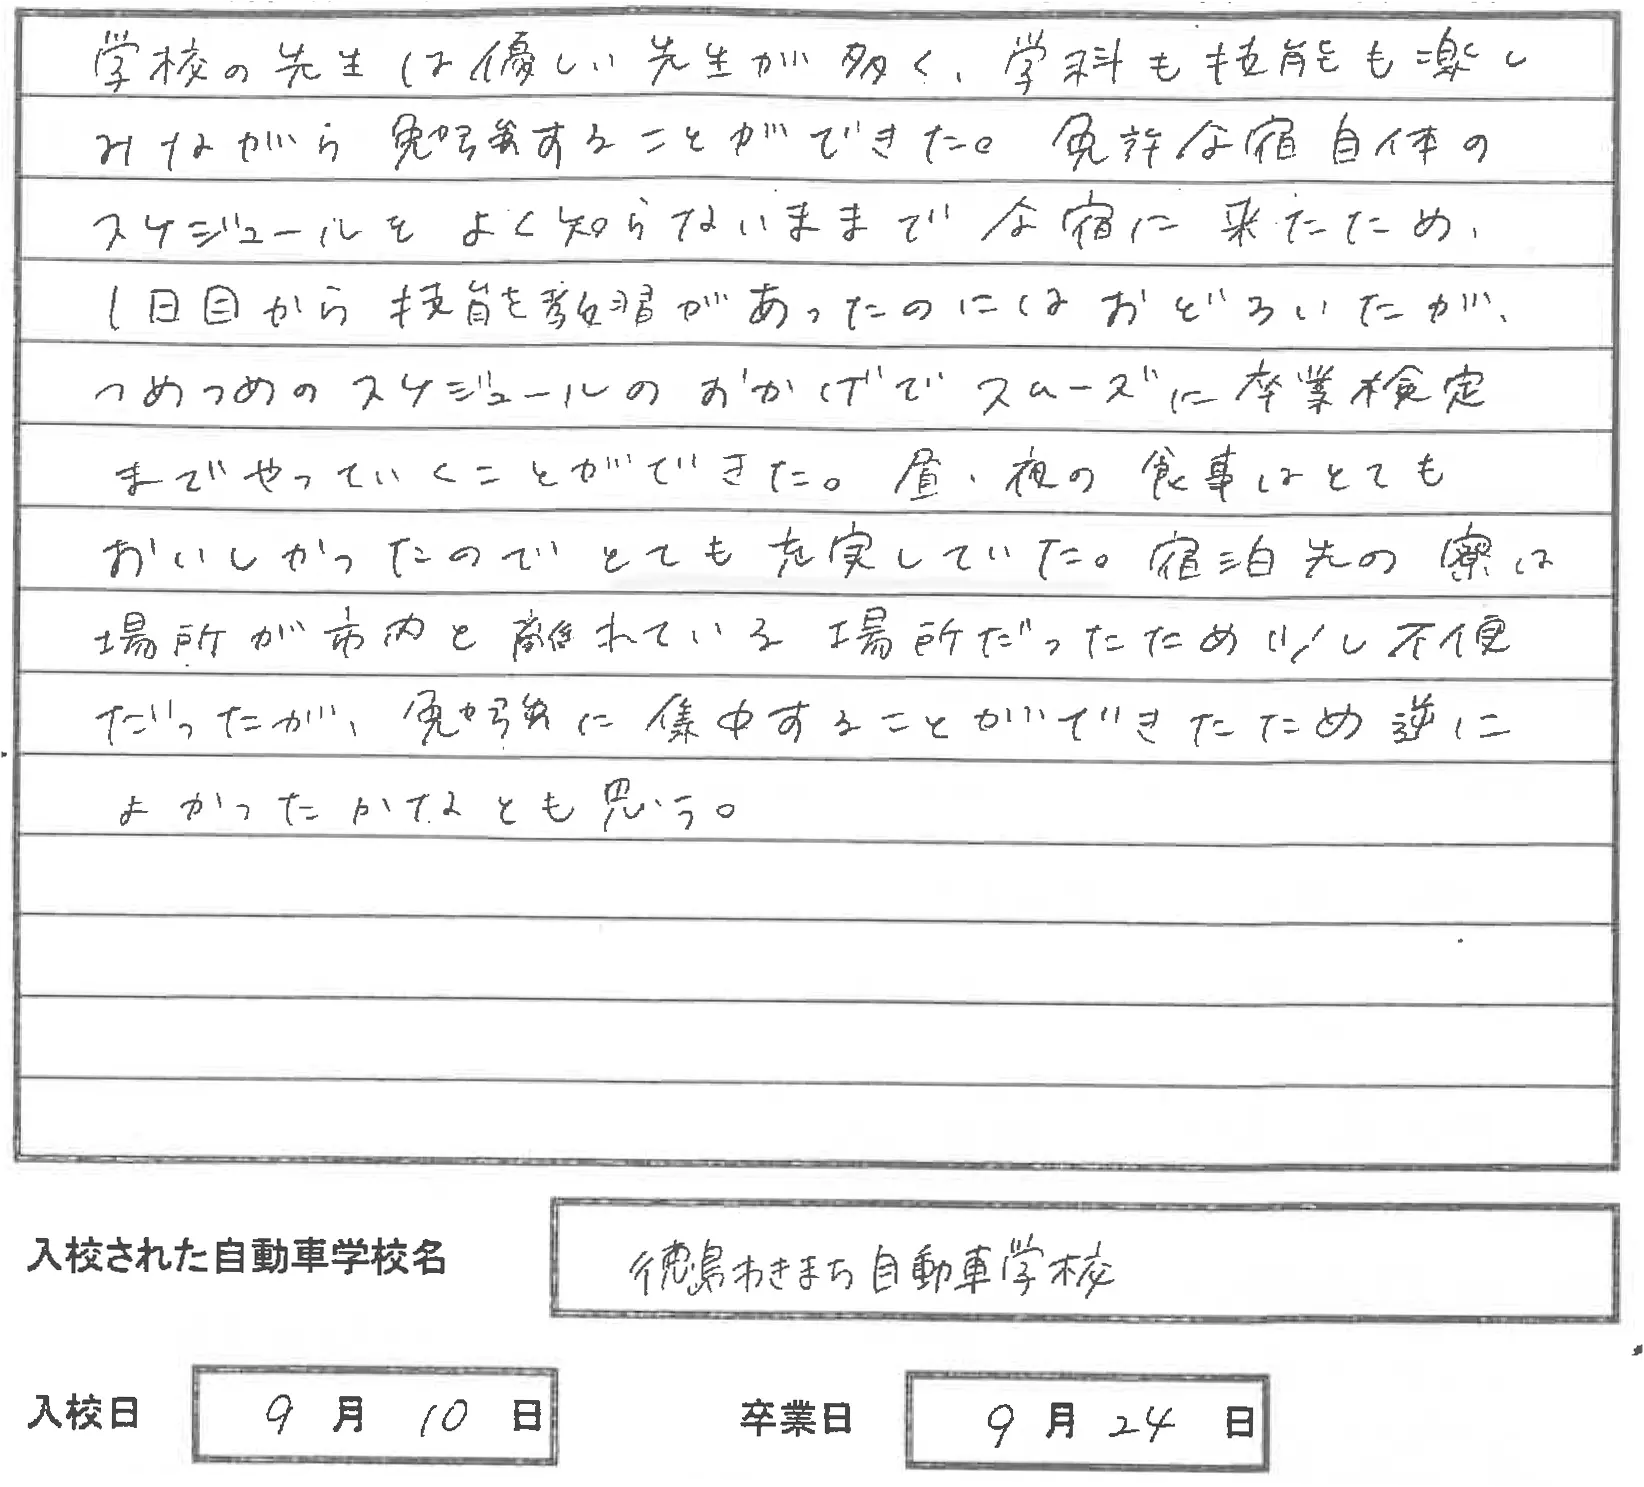 学校の先生は優しい先生が多く、学科も技能も楽し
みながら勉強することができた。免許合宿自体の
スケジュールをよく知らないままで合宿に来たため、
1日目から技能教習があったのにはおどろいたが、
つめつめのスケジュールのおかげでスムーズに卒業検定
までやっていくことができた。昼・夜の食事はとても
おいしかったのでとても充実していた。宿泊先の寮は
場所が市内と離れている場所だったため少し不便
だったが、勉強に集中することができたため逆に
よかったかなとも思う。
入校された自動車学校名 徳島わきまち自動車学校
入校日 9月10日 卒業日 9月24日